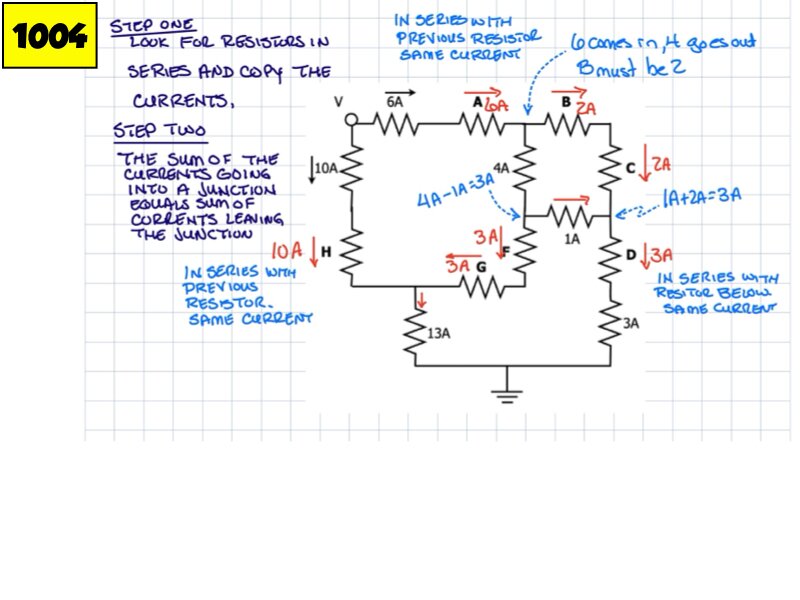 1004
STEP ONE
LOOK FOR RESISTORS IN
SERIES AND COPY THE
CURRENTS.
STEP TWO
THE SUM OF THE
CURRENTS GOING
INTO A JUNCTION
EQUALS SUM OF
CURRENTS LEAVING
THE JUNCTION
IN SERIES WITH
PREVIOUS RESISTOR
SAME CURRENT
6 comes in, 4 goes out
B must be 2
V
6A
A 6A
B
2A
10A
4A
C 2A
4A-1A=3A
1A+2A=3A
1A
10A H
3A
F
3A G
D 3A
IN SERIES WITH
PREVIOUS
RESISTOR.
SAME CURRENT
IN SERIES WITH
RESITOR BELOW
SAME CURRENT
13A
3A